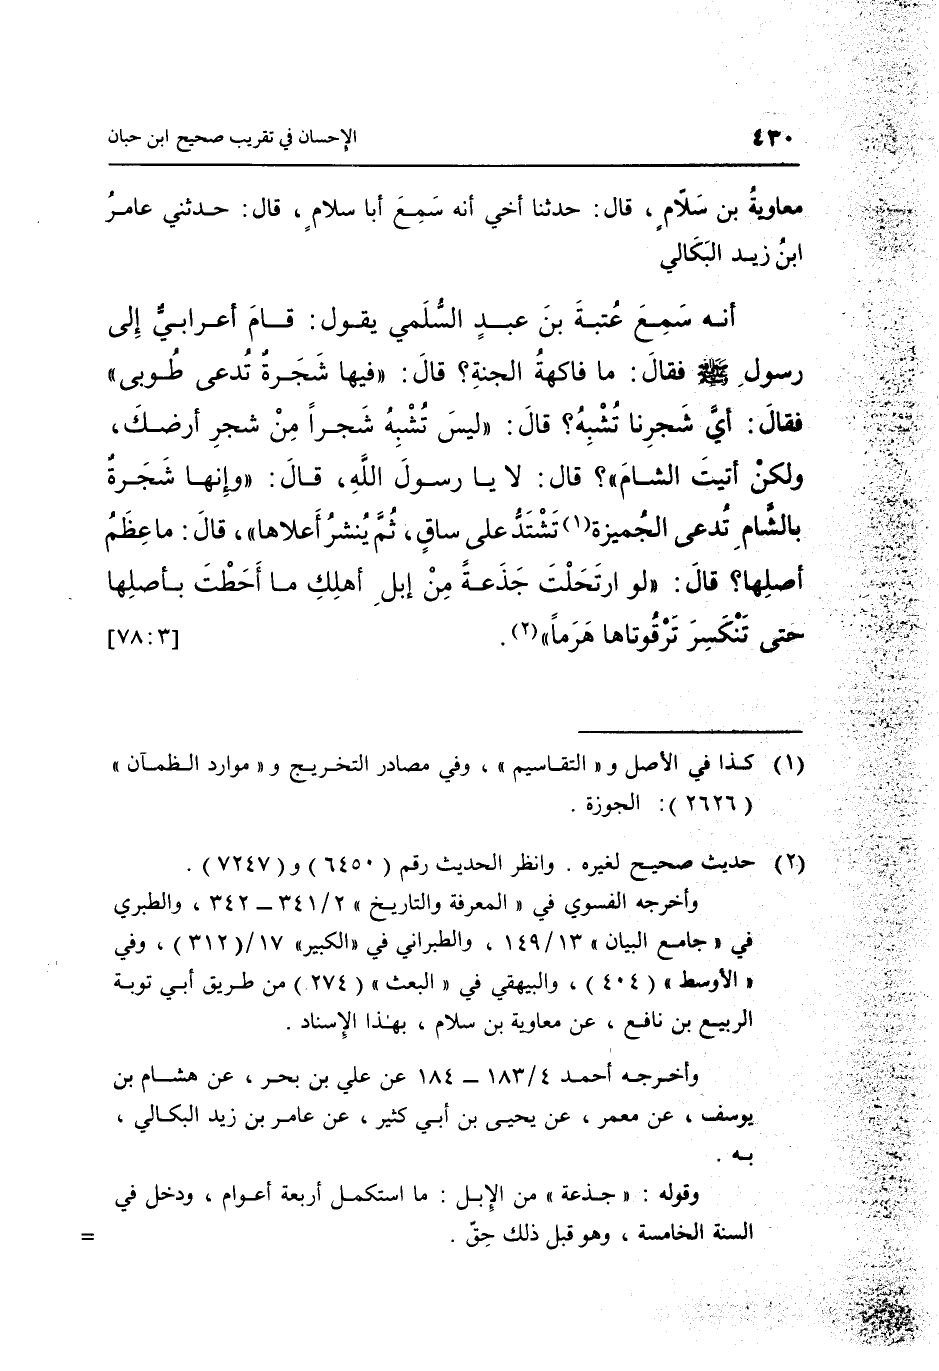 ٤٣٠ الإحسان في تقريب صحيح ابن حبان
معاويةُ بن سَلّامٍ ، قال : حدثنا أخي أنه سَمِعَ أبا سلامٍ ، قال : حـدثني عامـرُ
ابنُ زيـد البَكَالي
أنـه سَمِـعَ عُتبـةَ بنَ عبـدٍ السُّلَمي يقـول : قـامَ أعـرابـيٌّ إلى
رسولِ ﷺ فقالَ : ما فاكهةُ الجنةِ؟ قالَ : «فيها شَجَـرةٌ تُدعى طُـوبى»
فقالَ : أيَّ شَجرِنا تُشْبِهُ؟ قالَ : «ليسَ تُشْبِهُ شَجـراً مِنْ شجرِ أرضـكَ ،
ولكنْ أتيتَ الشـامَ»؟ قال : لا يـا رسـولَ اللَّهِ ، قـالَ : «وإنهـا شَجَـرةٌ
بالشَّامِ تُدعى الجُميزة(١) تَشْتَدُّ على ساقٍ ، ثُمَّ يُنشرُ أَعلاها» ، قالَ : ما عِظَمُ
أصلِها؟ قالَ : «لو ارتَحَلْتَ جَذَعـةً مِنْ إبلِ أهلِكِ مـا أَحَطْتَ بـأصلِها
حتى تَنْكَسِرَ تَرْقُوتاها هَرَماً»(٢) . [٧٨:٣]
(١) كـذا في الأصل و « التقـاسيم » ، وفي مصادر التخـريـج و « موارد الـظمـآن »
( ٢٦٢٦ ) : الجوزة .
(٢) حديث صحيح لغيره . وانظر الحديث رقم ( ٦٤٥٠ ) و ( ٧٢٤٧ ) .
وأخرجه الفسوي في « المعرفة والتاريـخ » ٣٤١/٢ – ٣٤٢ ، والطبري
في « جامع البيان » ١٤٩/١٣ ، والطبراني في «الكبير» ١٧/( ٣١٢ ) ، وفي
« الأوسط » ( ٤٠٤ ) ، والبيهقي في « البعث » ( ٢٧٤ ) من طـريق أبـي توبـة
الربيـع بن نافـع ، عن معاوية بن سلام ، بهـٰذا الإسناد .
وأخـرجـه أحمـد ١٨٣/٤ – ١٨٤ عن علي بن بحـر ، عن هشـام بن
يوسف ، عن معمر ، عن يحيـى بن أبـي كثير ، عن عامـر بن زيد البكـالي ،
بـه .
وقوله : « جـذعة » من الإبـل : ما استكمـل أربعة أعـوام ، ودخل في
السنة الخامسة ، وهو قبل ذلك حِقّ . =